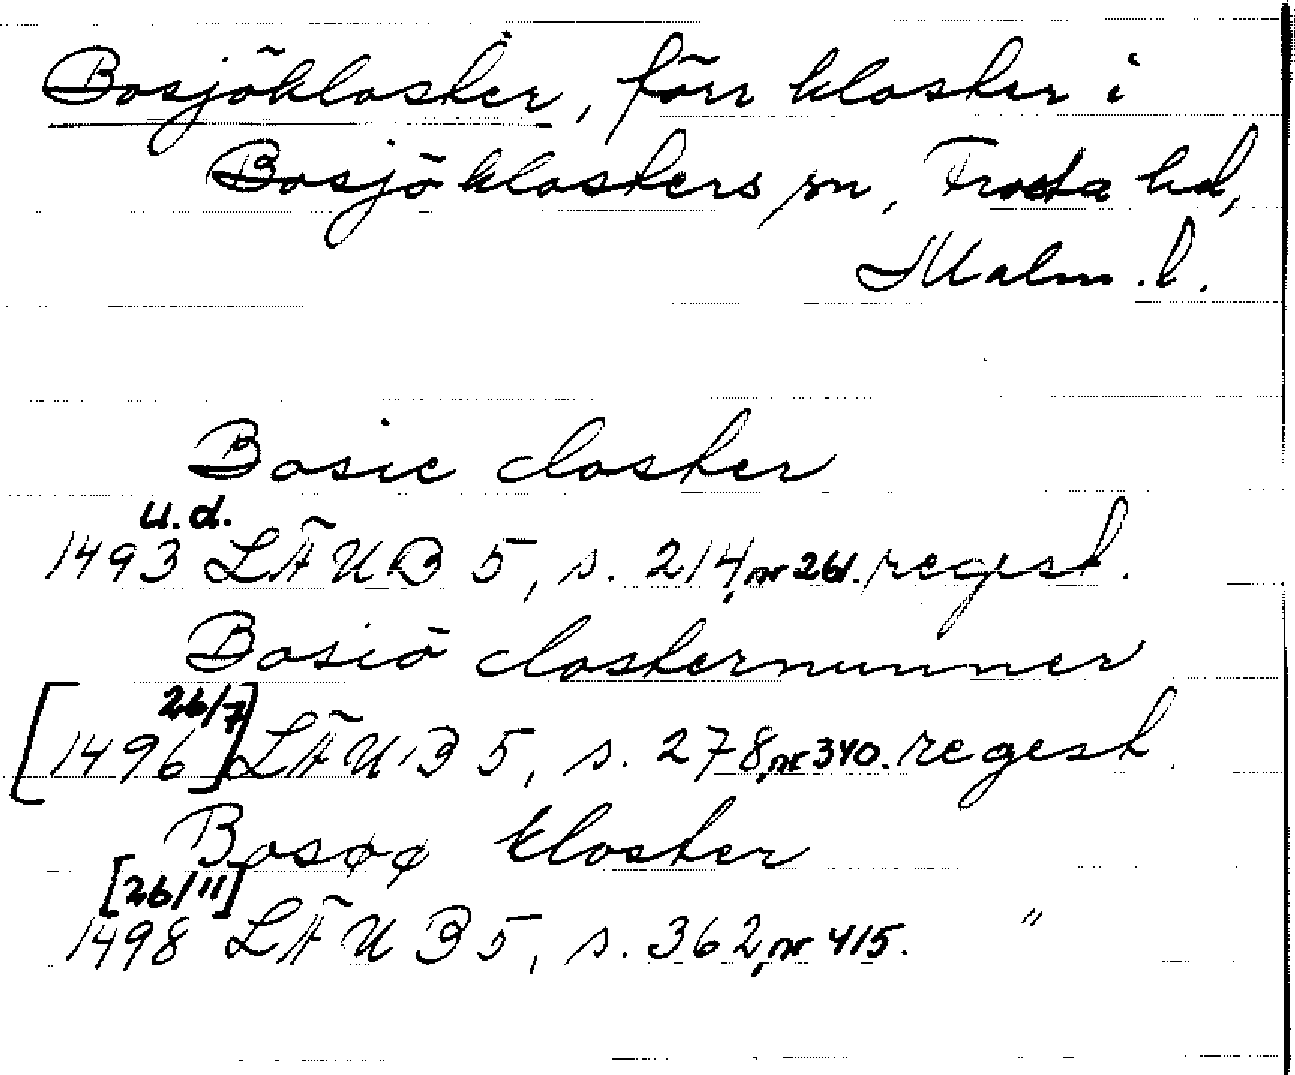 Bosjökloster, förr kloster i
Bosjöklosters sn, Frosta hd,
Malm. l.
Bosie closter
u.d.
1493 LÄUB 5, s. 214, nr 261. regest.
Bosiö closternunner
26/7
[1496] LÄUB 5, s. 278, nr 340. regest.
Bosøø kloster
[26/11]
1498 LÄUB 5, s. 362, nr 415. "